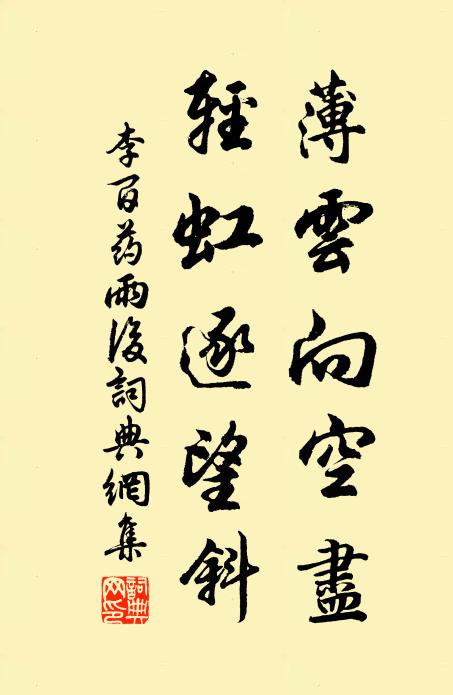 薄雲向空盡
輕虹逐望斜
李百药雨後詞典網集
詞典网印